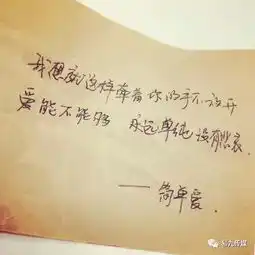 我想就这样牵着你的手不放开
爱能不能够 永远单纯没有悲哀.
—— 简单爱.